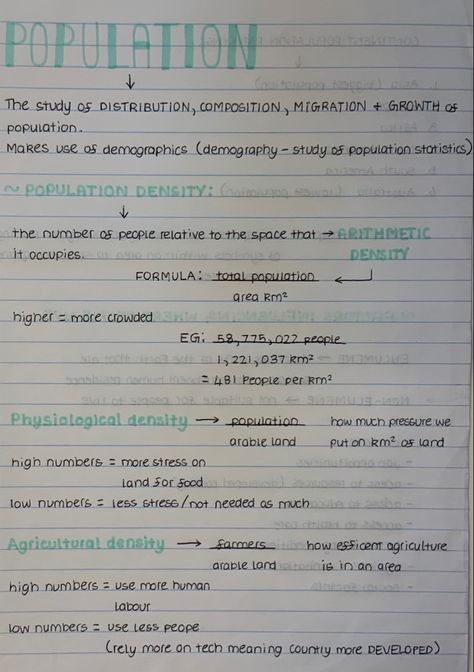 POPULATION
↓
The study of DISTRIBUTION, COMPOSITION, MIGRATION + GROWTH of
population.
Makes use of demographics (demography - study of population statistics)
~ POPULATION DENSITY:
↓
the number of people relative to the space that → ARITHMETIC
it occupies. DENSITY
FORMULA: total population ←
area km²
higher = more crowded
EG: 58,775,022 people
1,221,037 km²
= 481 People per km²
Physiological density → population how much pressure we
arable land put on km² of land
high numbers = more stress on
land for food
low numbers = less stress/not needed as much
Agricultural density → farmers how efficent agriculture
arable land is in an area
high numbers = use more human
labour
low numbers = use less peope
(rely more on tech meaning country more DEVELOPED)